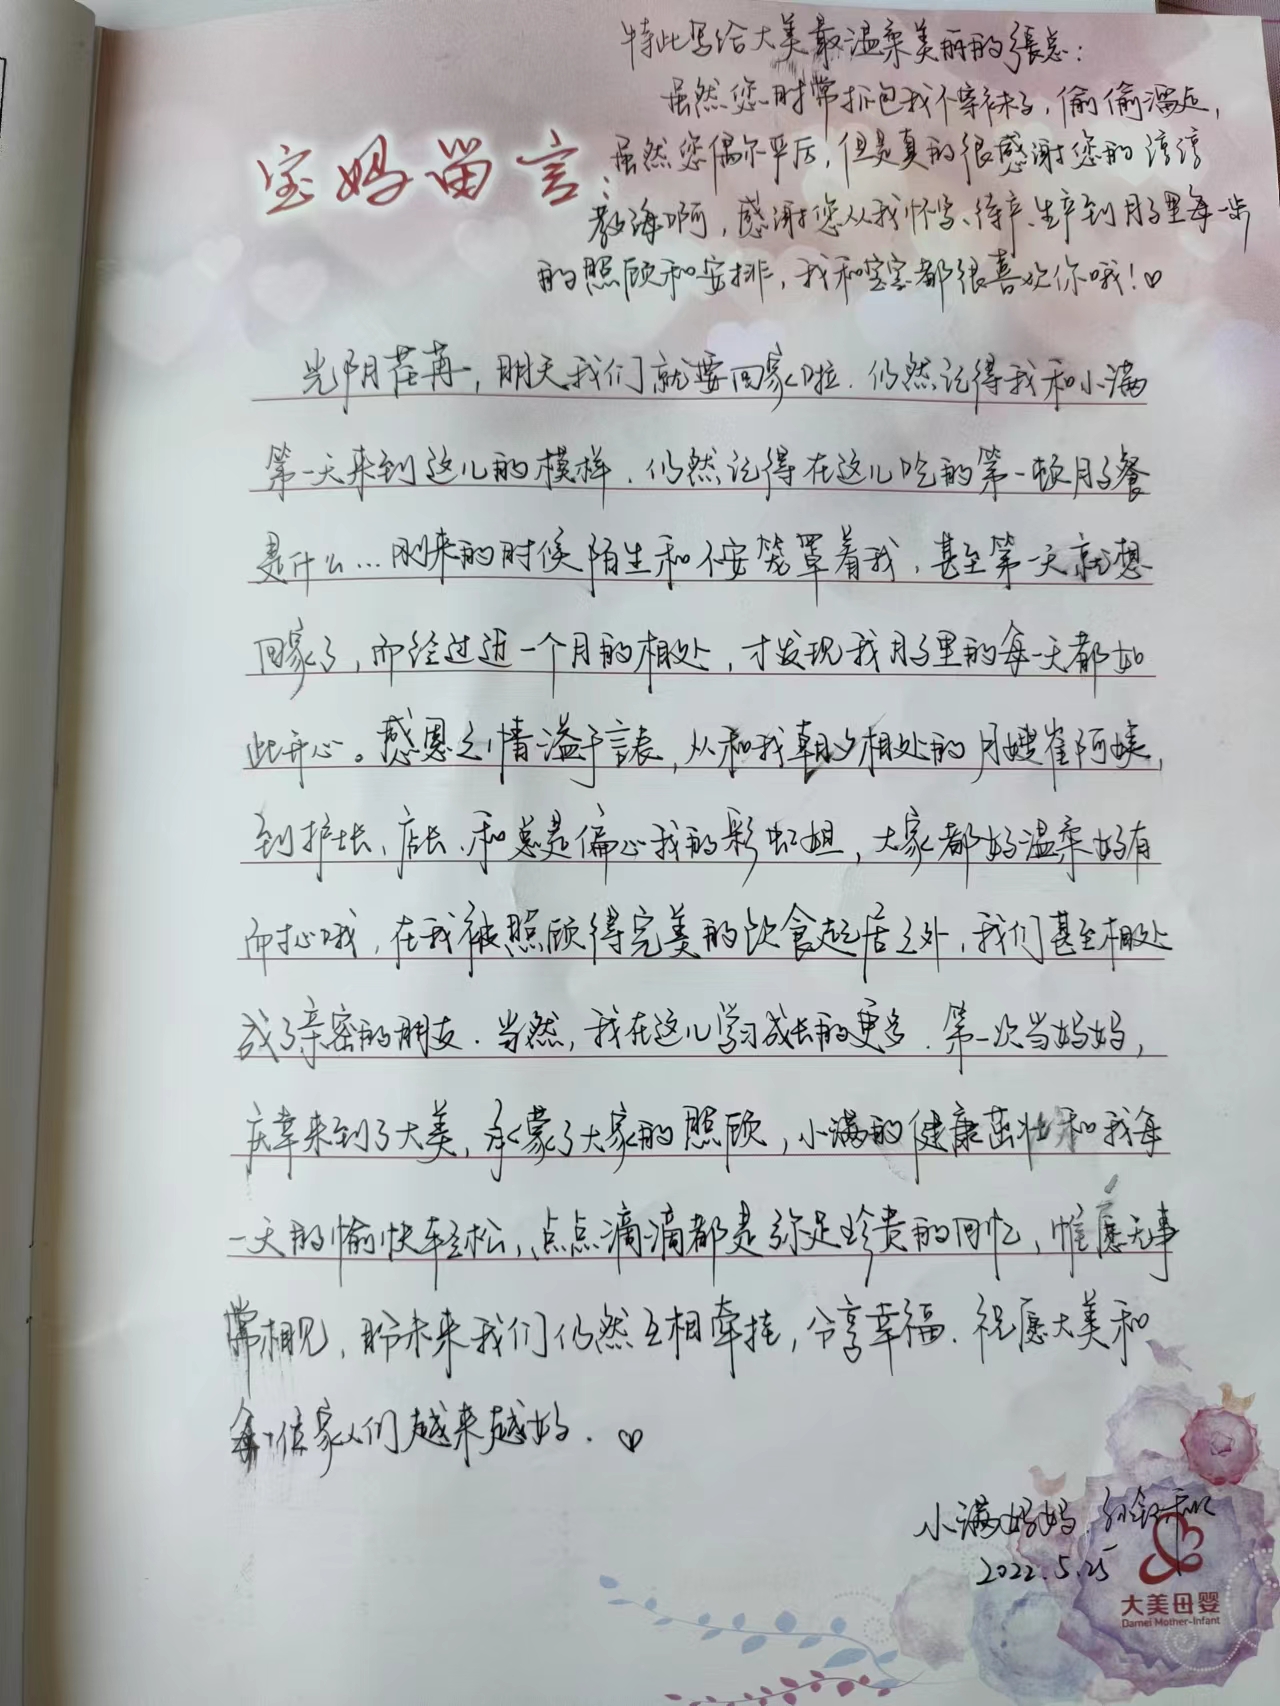 特此写给大美最温柔美丽的張总:
虽然您时常抓包我不穿袜子,偷偷溜走,
虽然您偶尔严厉,但是真的很感谢您的谆谆
教诲啊,感谢您从我怀孕、待产、生产到月子里每一步
的照顾和安排,我和宝宝都很喜欢你哦!♡
宝妈留言:
光阴荏苒,明天我们就要回家啦.仍然记得我和小满
第一天来到这儿的模样.仍然记得在这儿吃的第一顿月子餐
是什么...刚来的时候陌生和不安笼罩着我,甚至第一天就想
回家了,而经过近一个月的相处,才发现我月子里的每一天都如
此开心。感恩之情溢于言表,从和我朝夕相处的月嫂崔阿姨,
到护士长、店长、和总是偏心我的彩虹姐,大家都好温柔好有
耐心哦,在我被照顾得完美的饮食起居之外,我们甚至相处
成了亲密的朋友.当然,我在这儿学习成长的更多.第一次当妈妈,
庆幸来到了大美,承蒙了大家的照顾,小满的健康茁壮和我每
一天的愉快轻松,点点滴滴都是弥足珍贵的回忆,惟愿无事
常相见,盼未来我们仍然互相牵挂,分享幸福.祝愿大美和
每一位家人们越来越好.♡
小满妈妈.孙
2022.5.25
大美母婴
Damei Mother-Infant